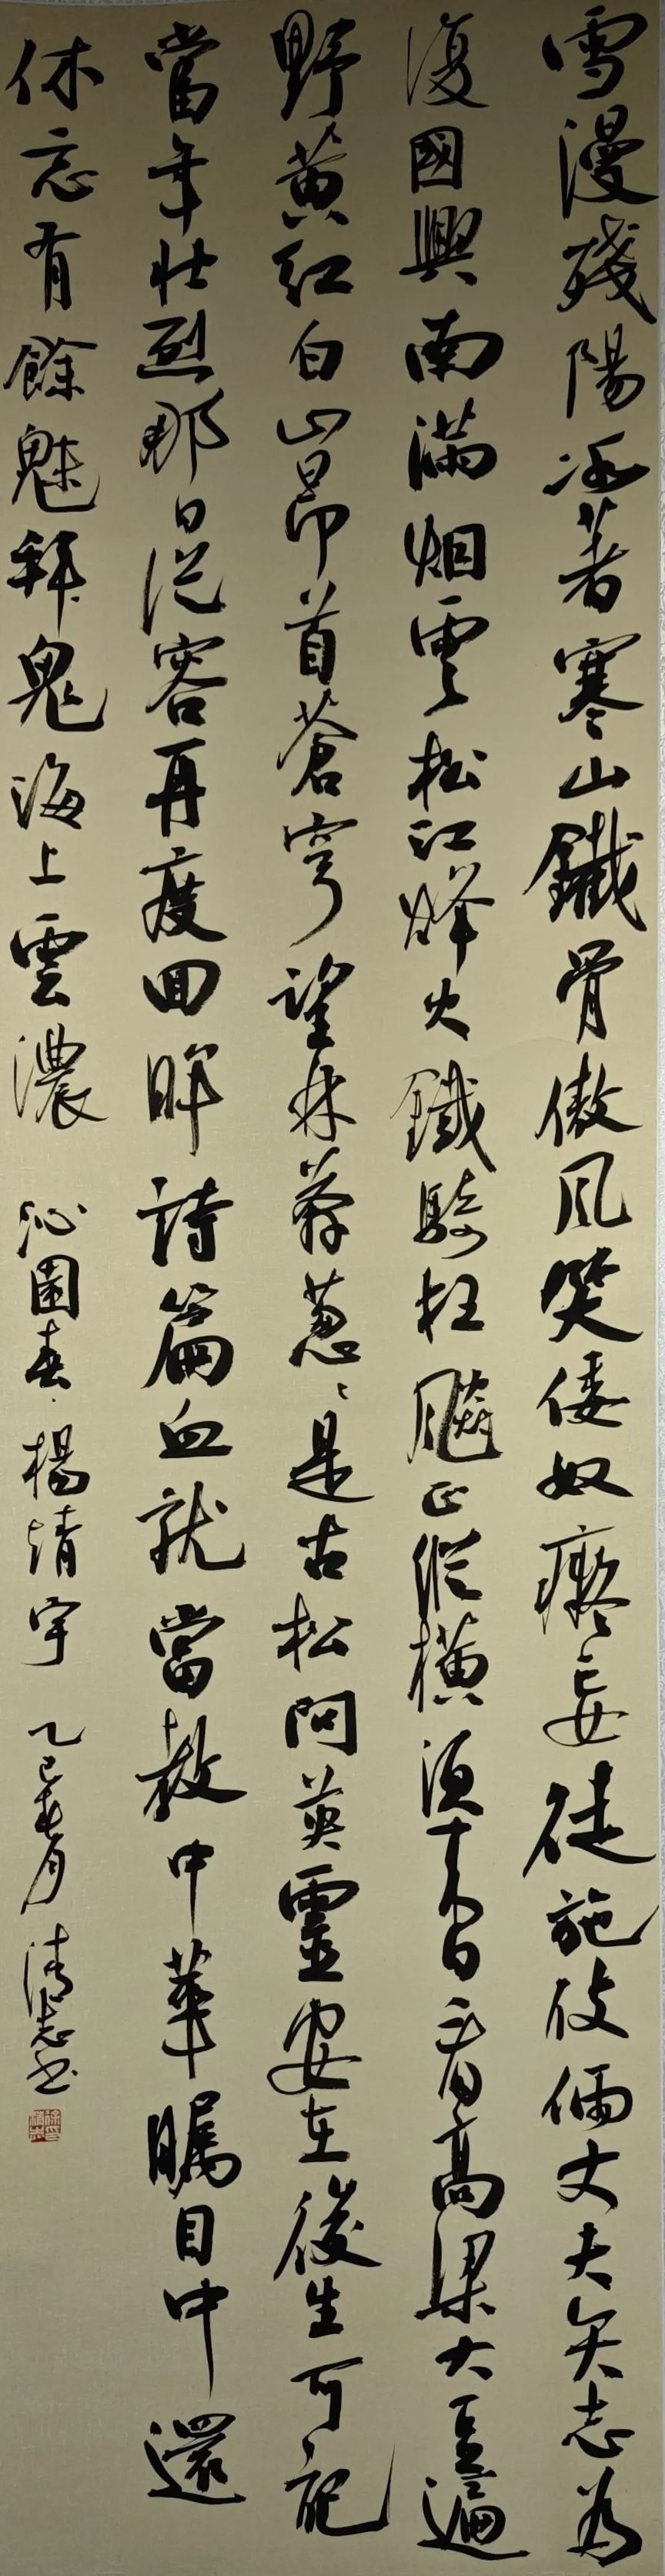 雪漫殘陽冰著寒山鐵骨傲風笑倭奴癡妄徒施伎倆丈夫矢志為
復國興南滿烟雲松江烽火鐵騎狂飈正縱橫須來日看高粱大豆遍
野黃紅白山昂首蒼穹望林莽蔥〻是古松問英靈安在後生可記
當年壯烈那日從容再度回眸詩篇血就當教中華矚目中還
休忘有餘魅拜鬼海上雲濃 沁園春·楊靖宇 乙巳春月 清志书